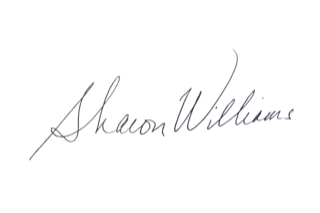 Sharon Williams